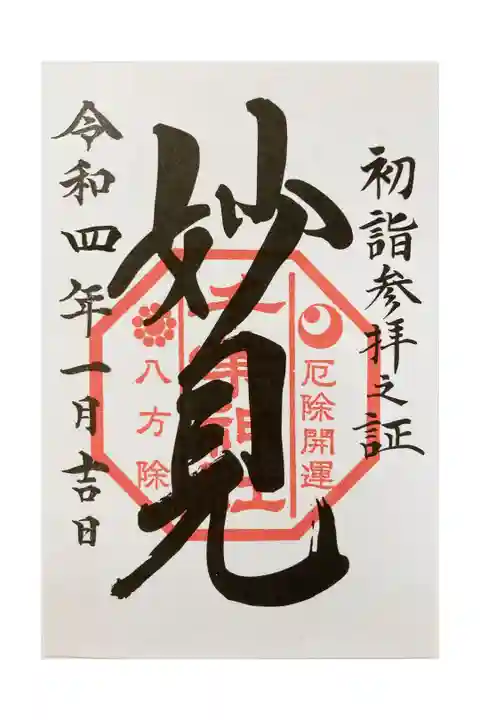 初詣参拝之証
厄除開運
妙見
八方除
令和四年一月吉日